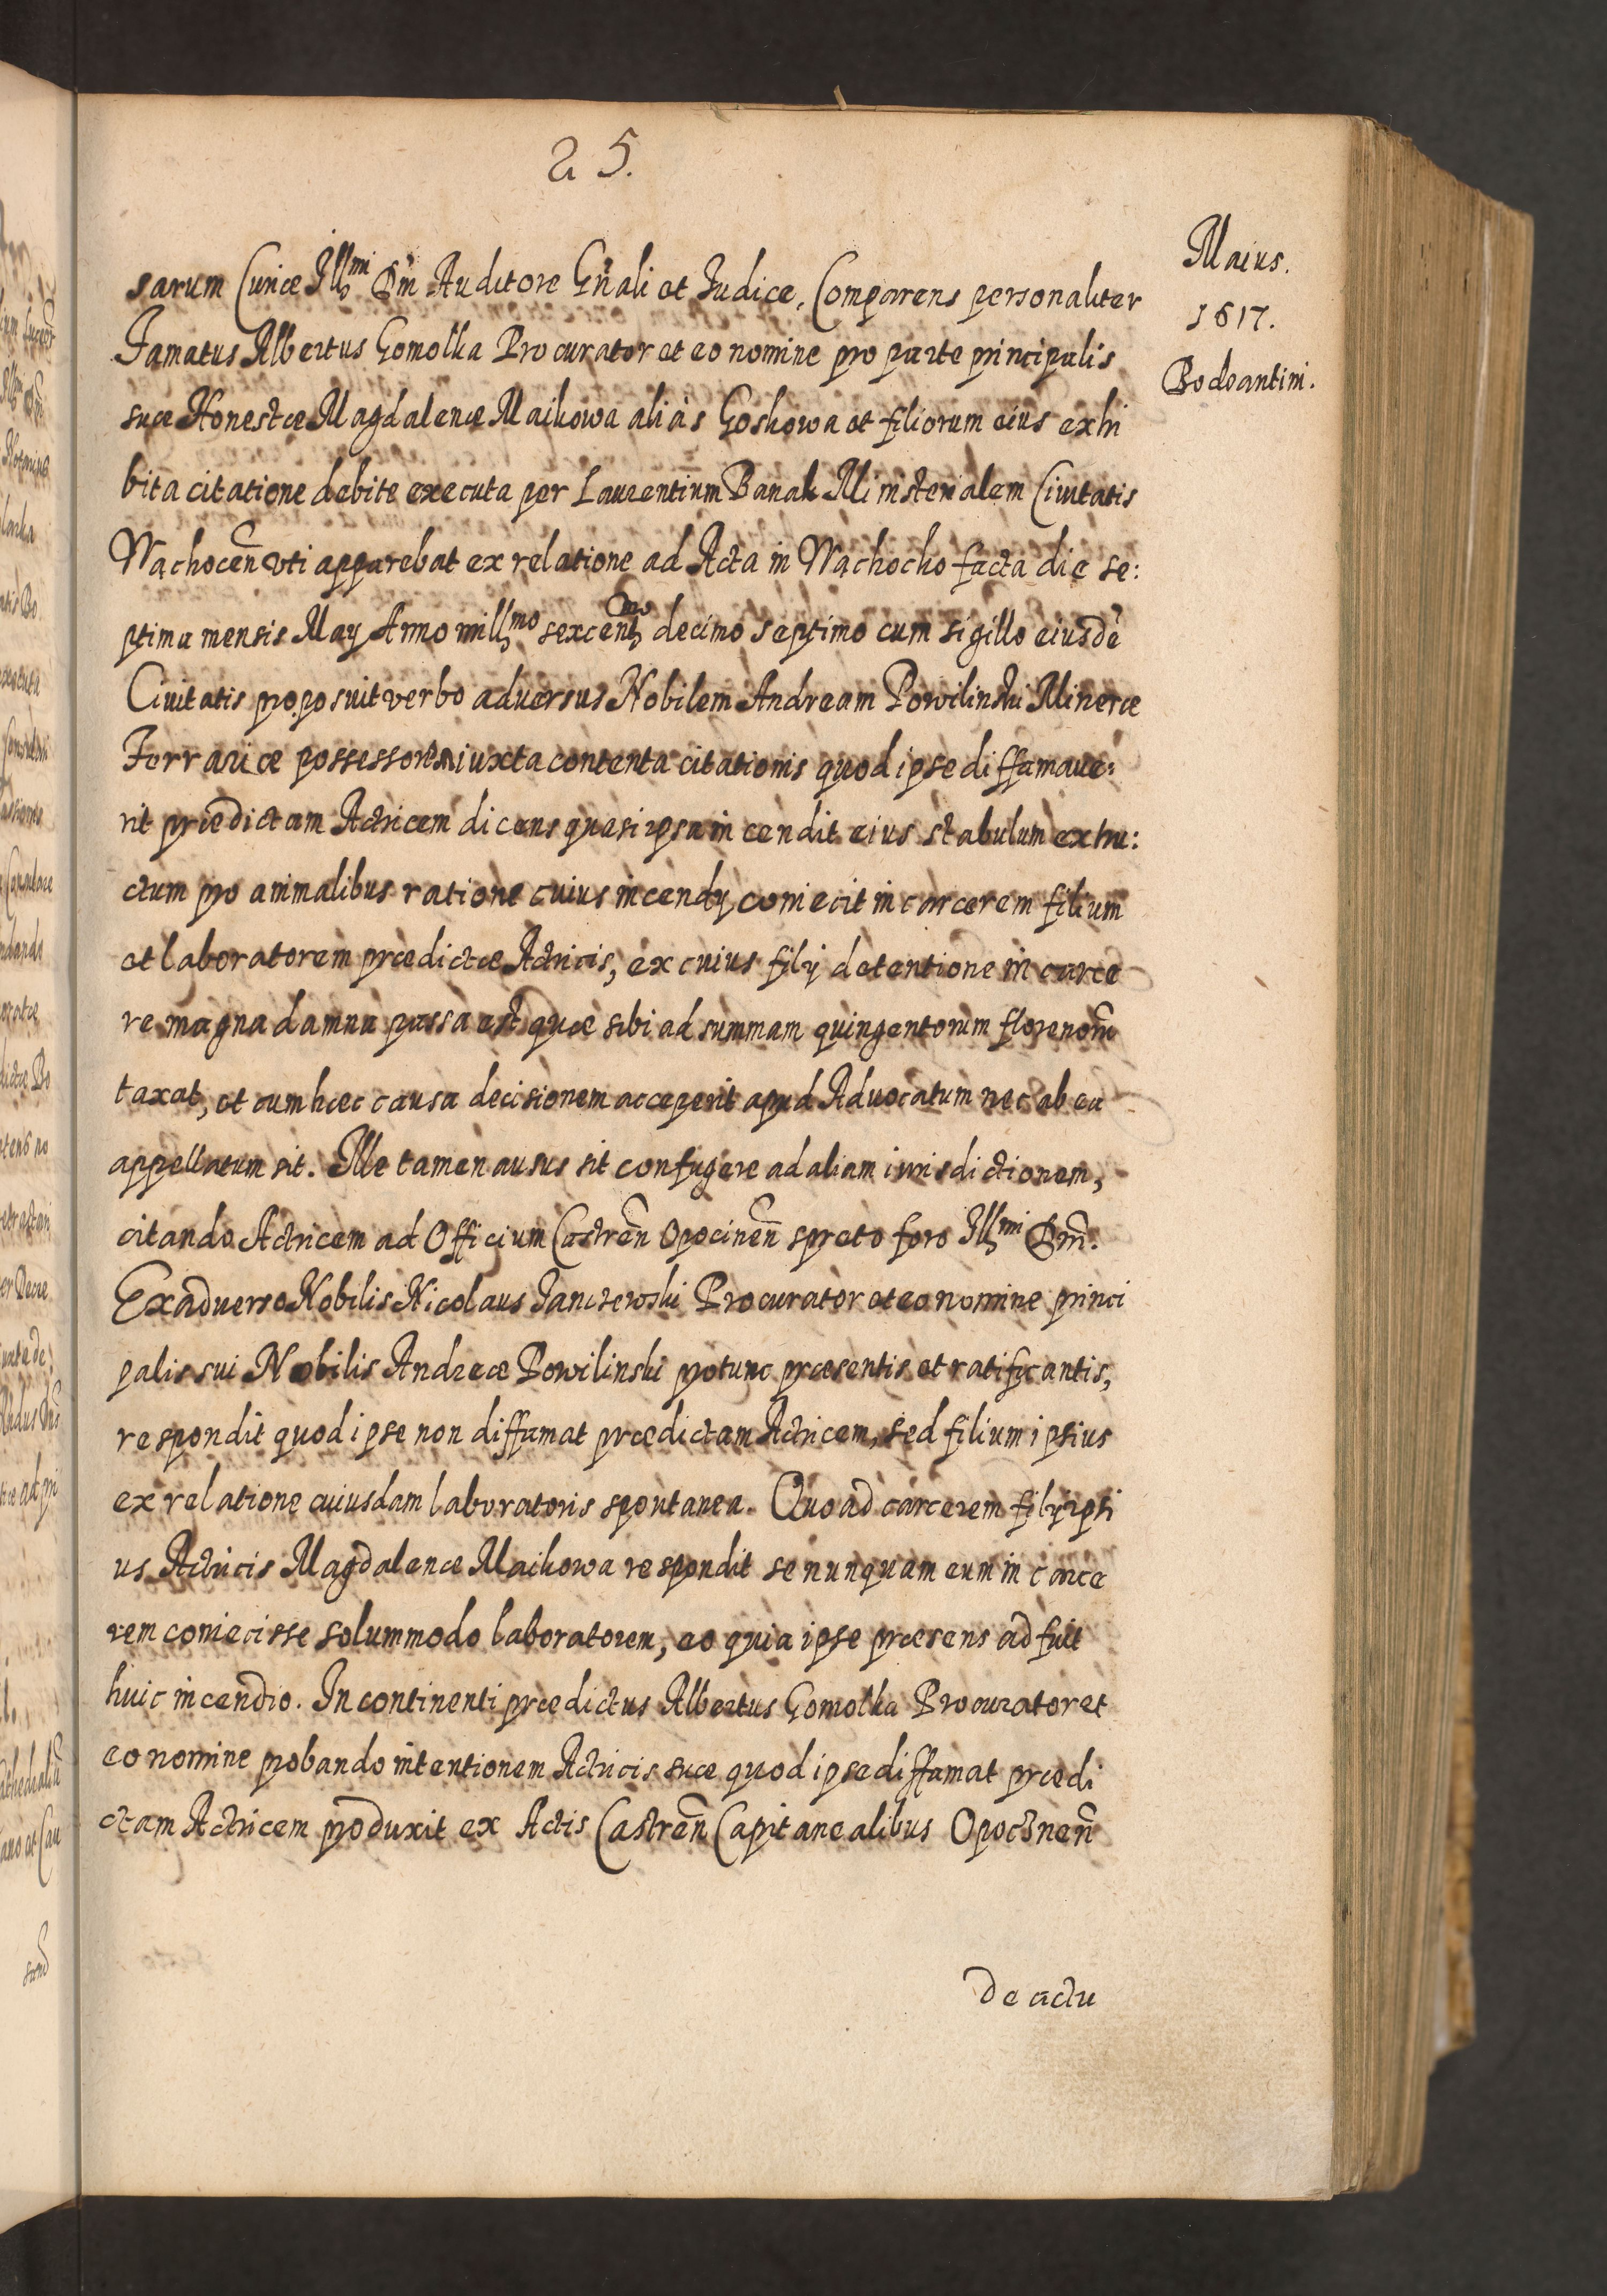 25.
Maius.
1617.
Bodzantini.
sarum Curiæ Illmi Dni Auditore Gnali et Judice, Comparens personaliter
Famatus Albertus Gomolka Procurator et eo nomine pro parte principalis
suæ Honestæ Magdalenæ Maikowa aliàs Goskowa et filiorum eius exhi
bita citatione debite executa per Laurentium Banak Ministerialem Ciuitatis
Wąchocen̄ vti apparebat ex relatione ad Acta in Wąchocko facta die se:
ptima mensis May Anno millmo sexcentmo decimo septimo cum sigillo eiusdē
Ciuitatis proposuit verbo aduersus Nobilem Andream Powilinski Mineræ
Ferrariæ possessorem iuxta contenta citationis quod ipse diffamaue:
rit prædictam Actricem dicens quasi ipsa incendit eius stabulum extru:
ctum pro animalibus ratione cuius incendy coniecit in carcerem filium
et laboratorem prædictæ Actricis, ex cuius filij detentione in carce
re magna damna passa est quæ sibi ad summam quingentorum florenorū
taxat, et cum hæc causa decisionem acceperit apud Aduocatum nec ab ea
appellatum sit. Ille tamen ausus sit confugere ad aliam iurisdictionem,
citando Actricem ad Officium Castren̄ Opocinen̄ spreto foro Illmi Dni.
Ex aduerso Nobilis Nicolaus Janczewski Procurator et eo nomine princi
palis sui Nobilis Andreæ Powilinski protunc præsentis et ratificantis,
respondit quod ipse non diffamat prædictam Actricem, sed filium ipsius
ex relatione cuiusdam laboratoris spontanea. Quo ad carcerem filij ipsi
us Actricis Magdalenæ Maikowa respondit se nunquam eum in carce
rem coniecisse solummodo laboratorem, eo quia ipse præsens adfuit
huic incendio. In continenti prædictus Albertus Gomolka Procurator et
eo nomine probando intentionem Actricis suæ quod ipse diffamat prædi
ctam Actricem produxit ex Actis Castren̄ Capitanealibus Opocznen̄
de actu